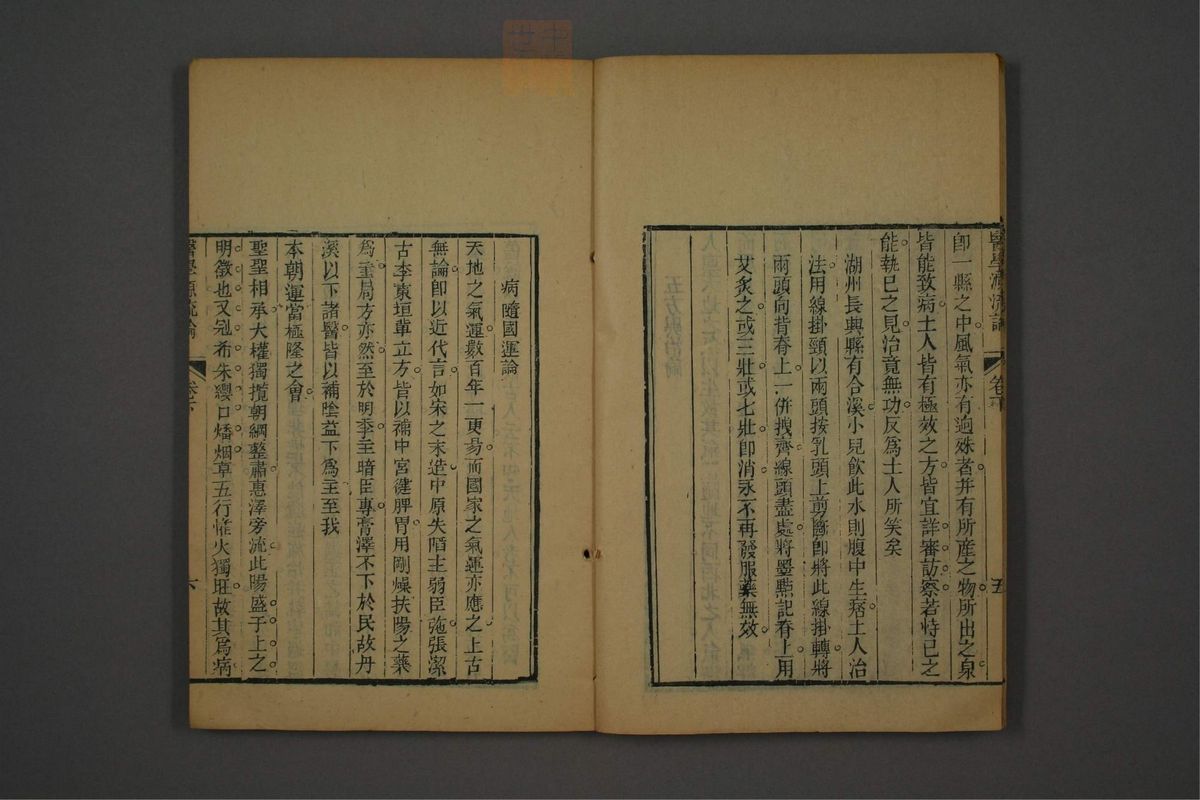 醫學源流論 卷下 五
卽一縣之中風氣亦有逈殊者并有所產之物所出之泉
皆能致病土人皆有極效之方皆宜詳審訪察若恃己之
能執己之見治竟無功反爲土人所笑矣
湖州長興縣有合溪小兒飲此水則腹中生痞土人治
法用線掛頸以兩頭按乳頭上剪斷卽將此線掛轉將
兩頭向背脊上一併拽齊線頭盡處將墨㸃記脊上用
艾炙之或三壯或七壯卽消永不再發服藥無效
病隨國運論
天地之氣運數百年一更易而國家之氣運亦應之上古
無論卽以近代言如宋之末造中原失陷主弱臣弛張潔
古李東垣輩立方皆以補中宮健脾胃用剛燥扶陽之藥
爲主局方亦然至於明季主暗臣專膏澤不下於民故丹
溪以下諸醫皆以補陰益下爲主至我
本朝運當極隆之會
聖聖相承大權獨攬朝綱整肅惠澤旁流此陽盛于上之
明徵也又冠希朱纓口燔烟草五行惟火獨旺故其爲病
醫學源流論 卷下 六